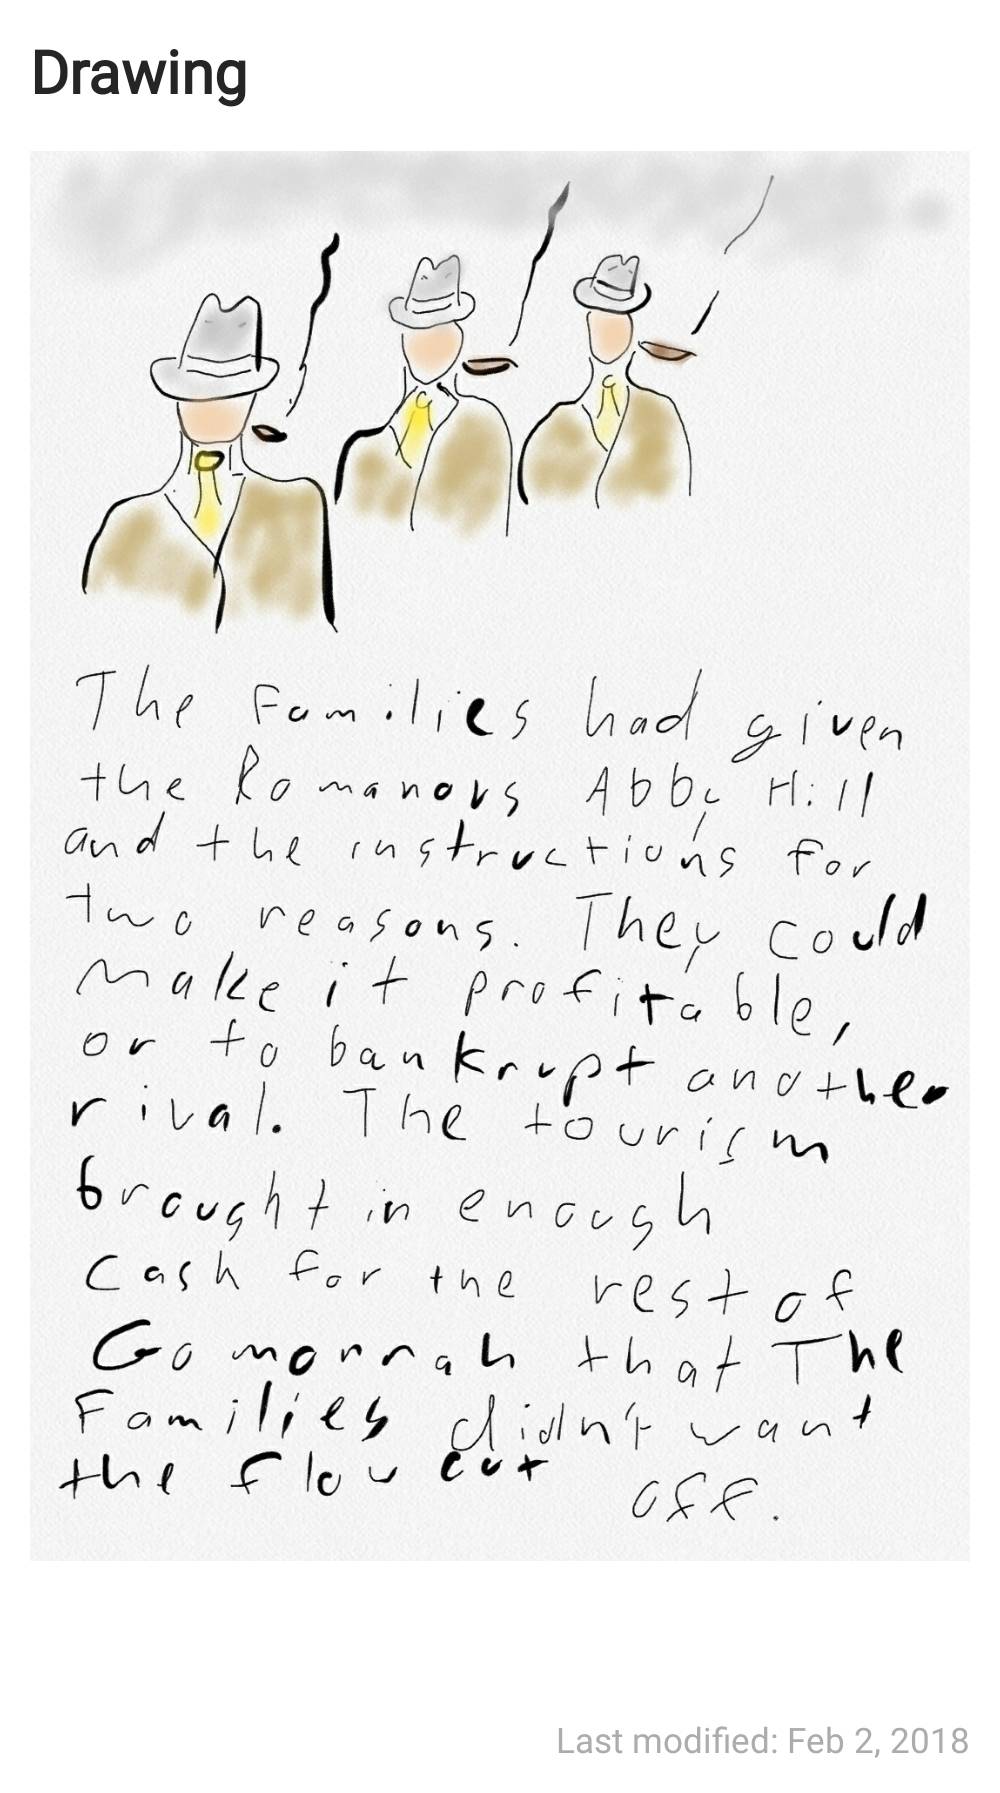 Drawing
The Families had given
the Romanovs Abby Hill
and the instructions for
two reasons. They could
make it profitable,
or to bankrupt another
rival. The tourism
brought in enough
cash for the rest of
Gomorrah that The
Families didn't want
the flow cut off.
Last modified: Feb 2, 2018